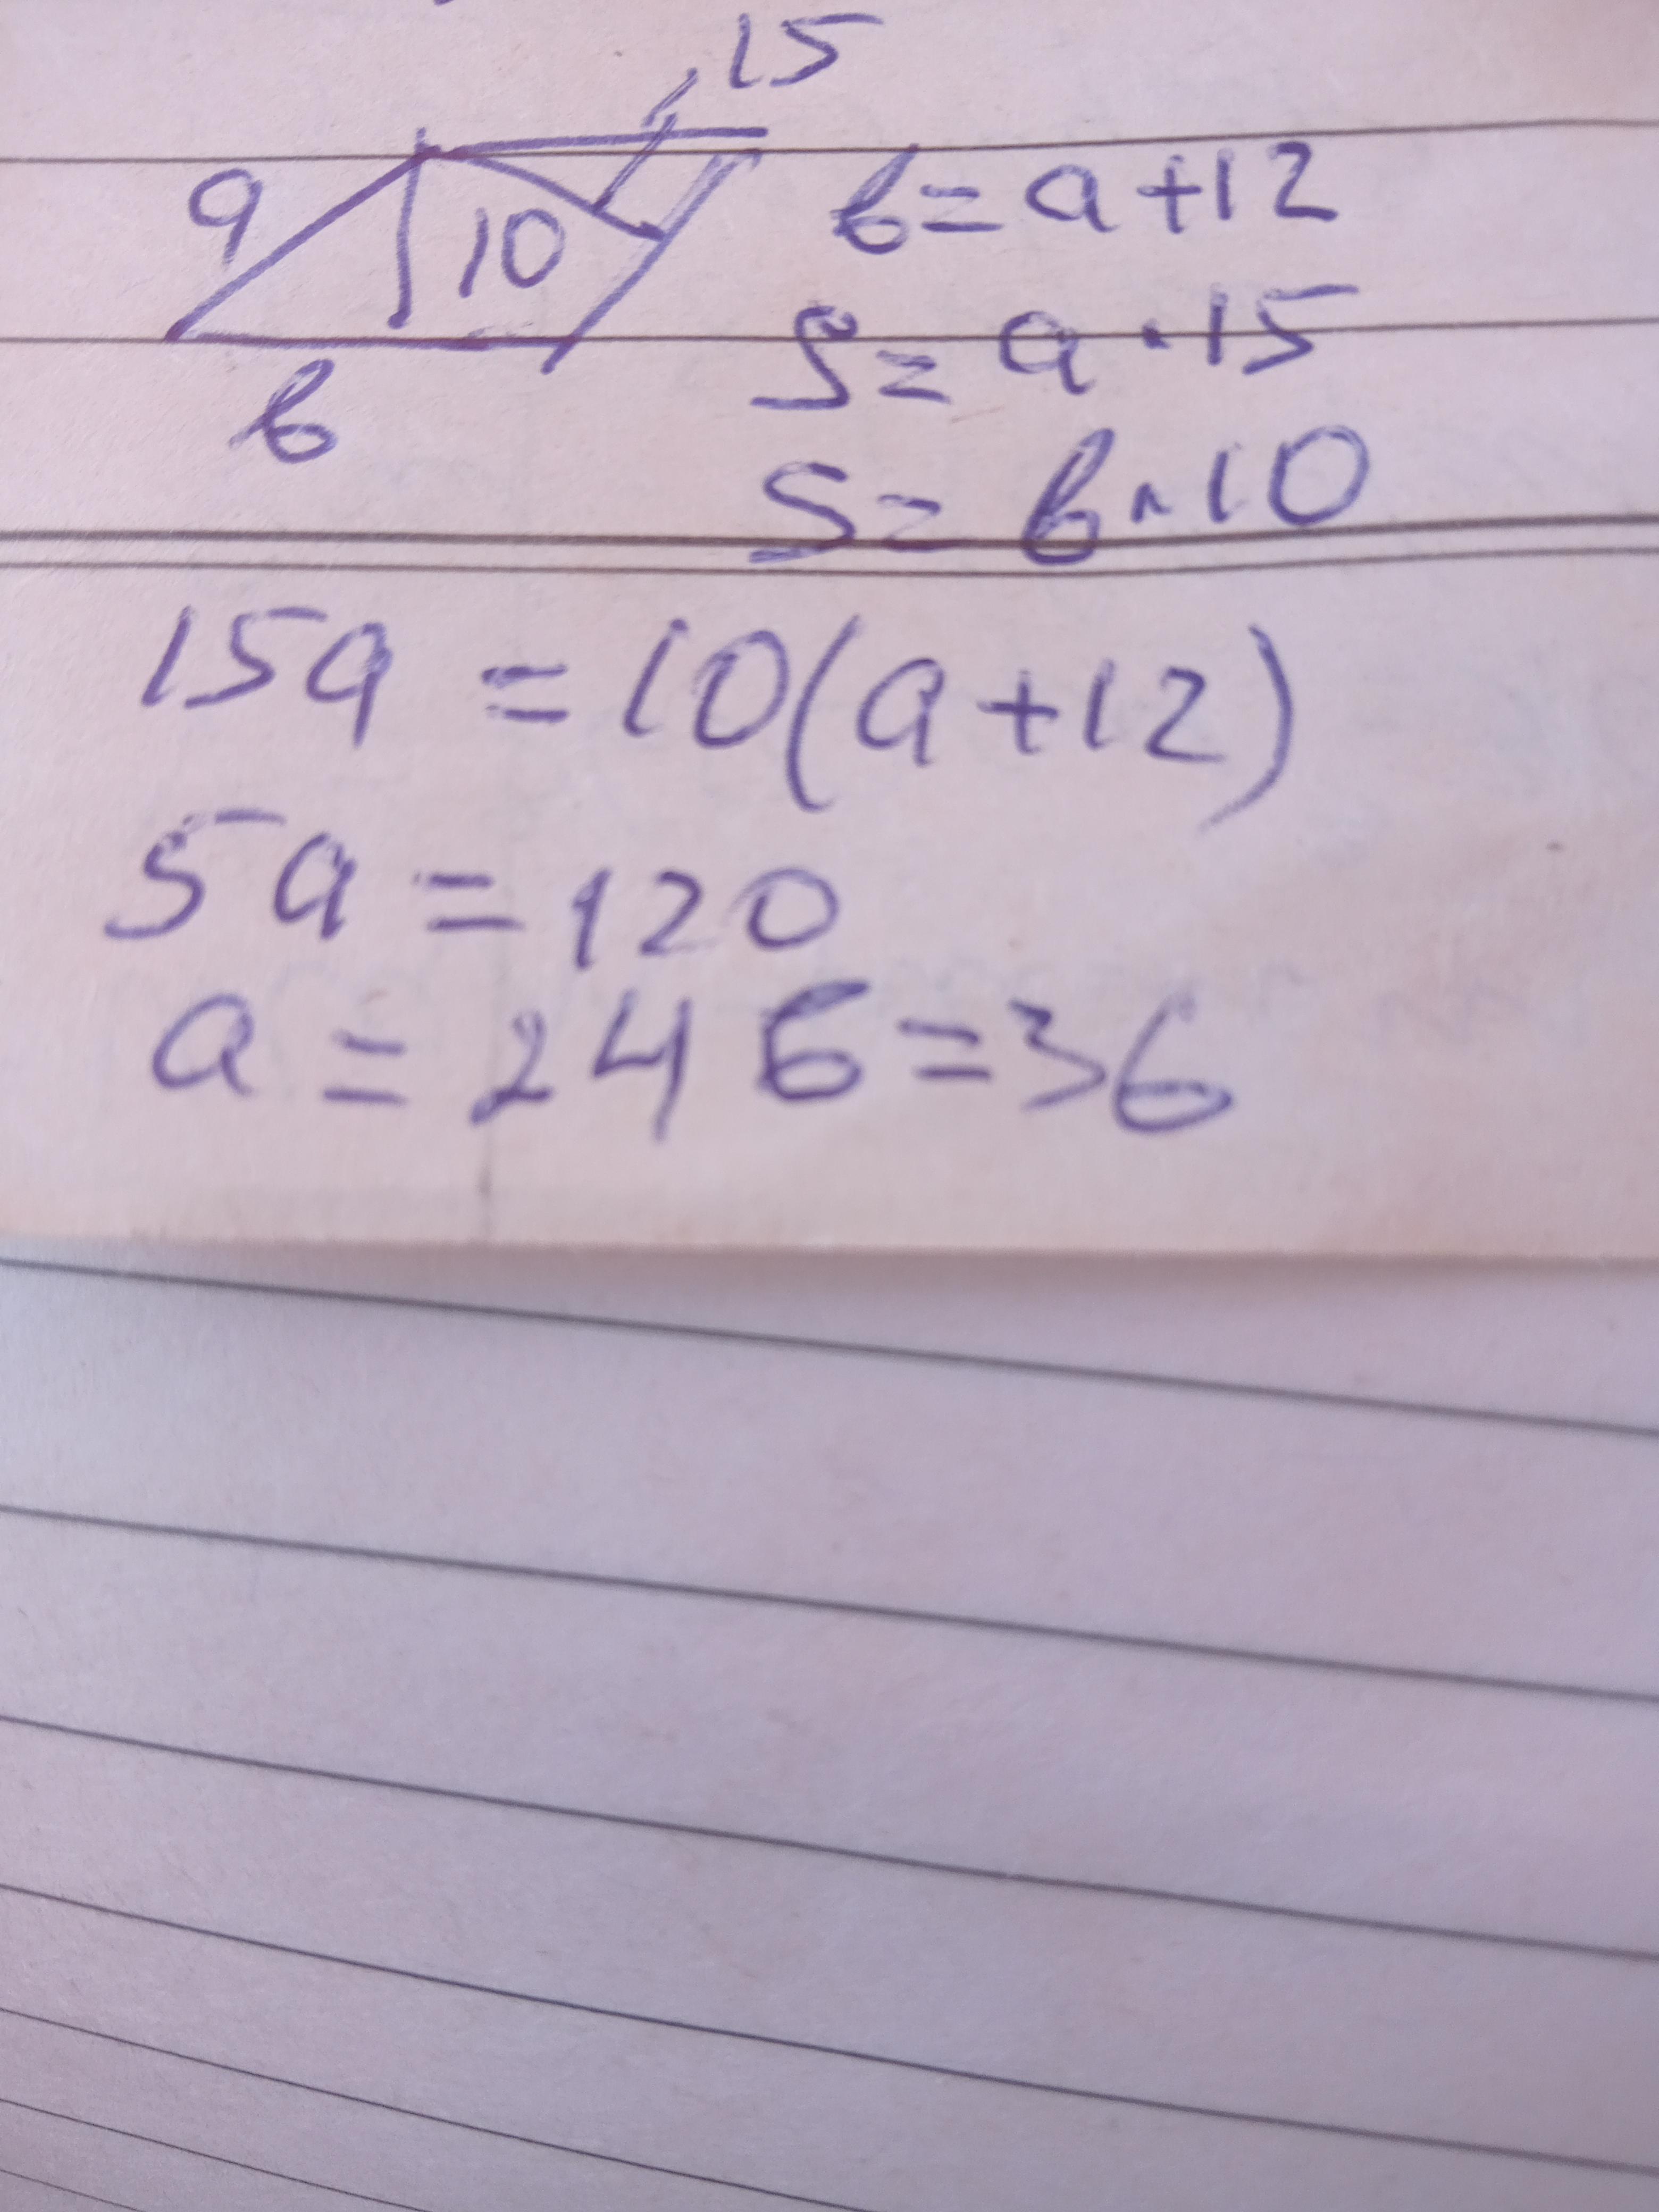 15
a 10 в = a + 12
S = a · 15
в S = в · 10
15a = 10(a + 12)
5a = 120
a = 24 б = 36